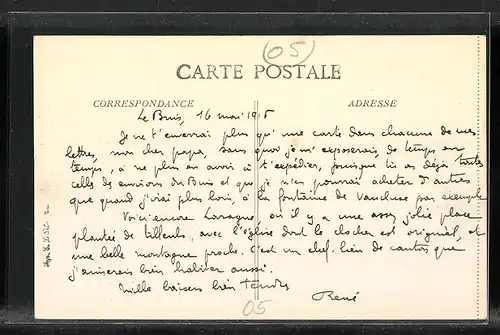 (05)
CARTE POSTALE
CORRESPONDANCE
ADRESSE
Le Buis, 16 mai 1915
Je ne t'enverrai plus qu'une carte dans chacune de mes
lettres, mon cher papa, sans quoi je m'exposerais, de temps en
temps, à ne plus en avoir à t'expédier, puisque tu as déjà toutes
celles des environs du Buis et que je n'en pourrai acheter d'autres
que quand j'irai plus loin, à la fontaine de Vaucluse par exemple
Voici encore Laragne, où il y a une assez jolie place
plantée de tilleuls, avec l'église dont le clocher est original, et
une belle montagne proche. C'est un chef-lieu de canton que
j'aimerais bien habiter aussi.
Mille baisers bien tendres
René
05